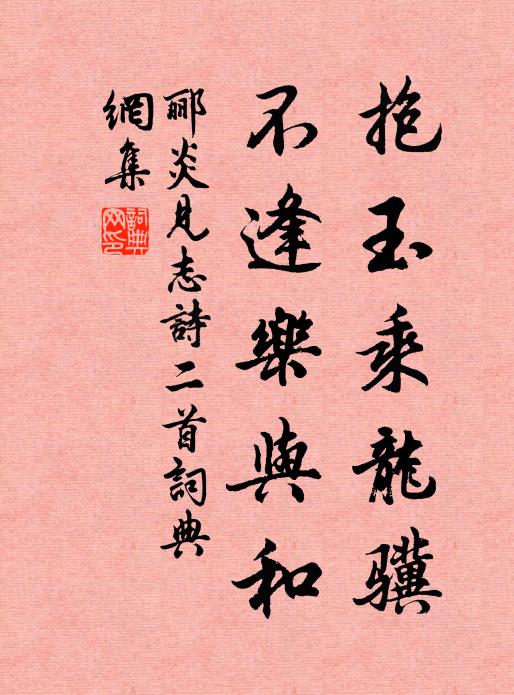 抱玉乘龍驥
不逢樂與和
郦炎見志詩二首詞典
網集
詞典
网印